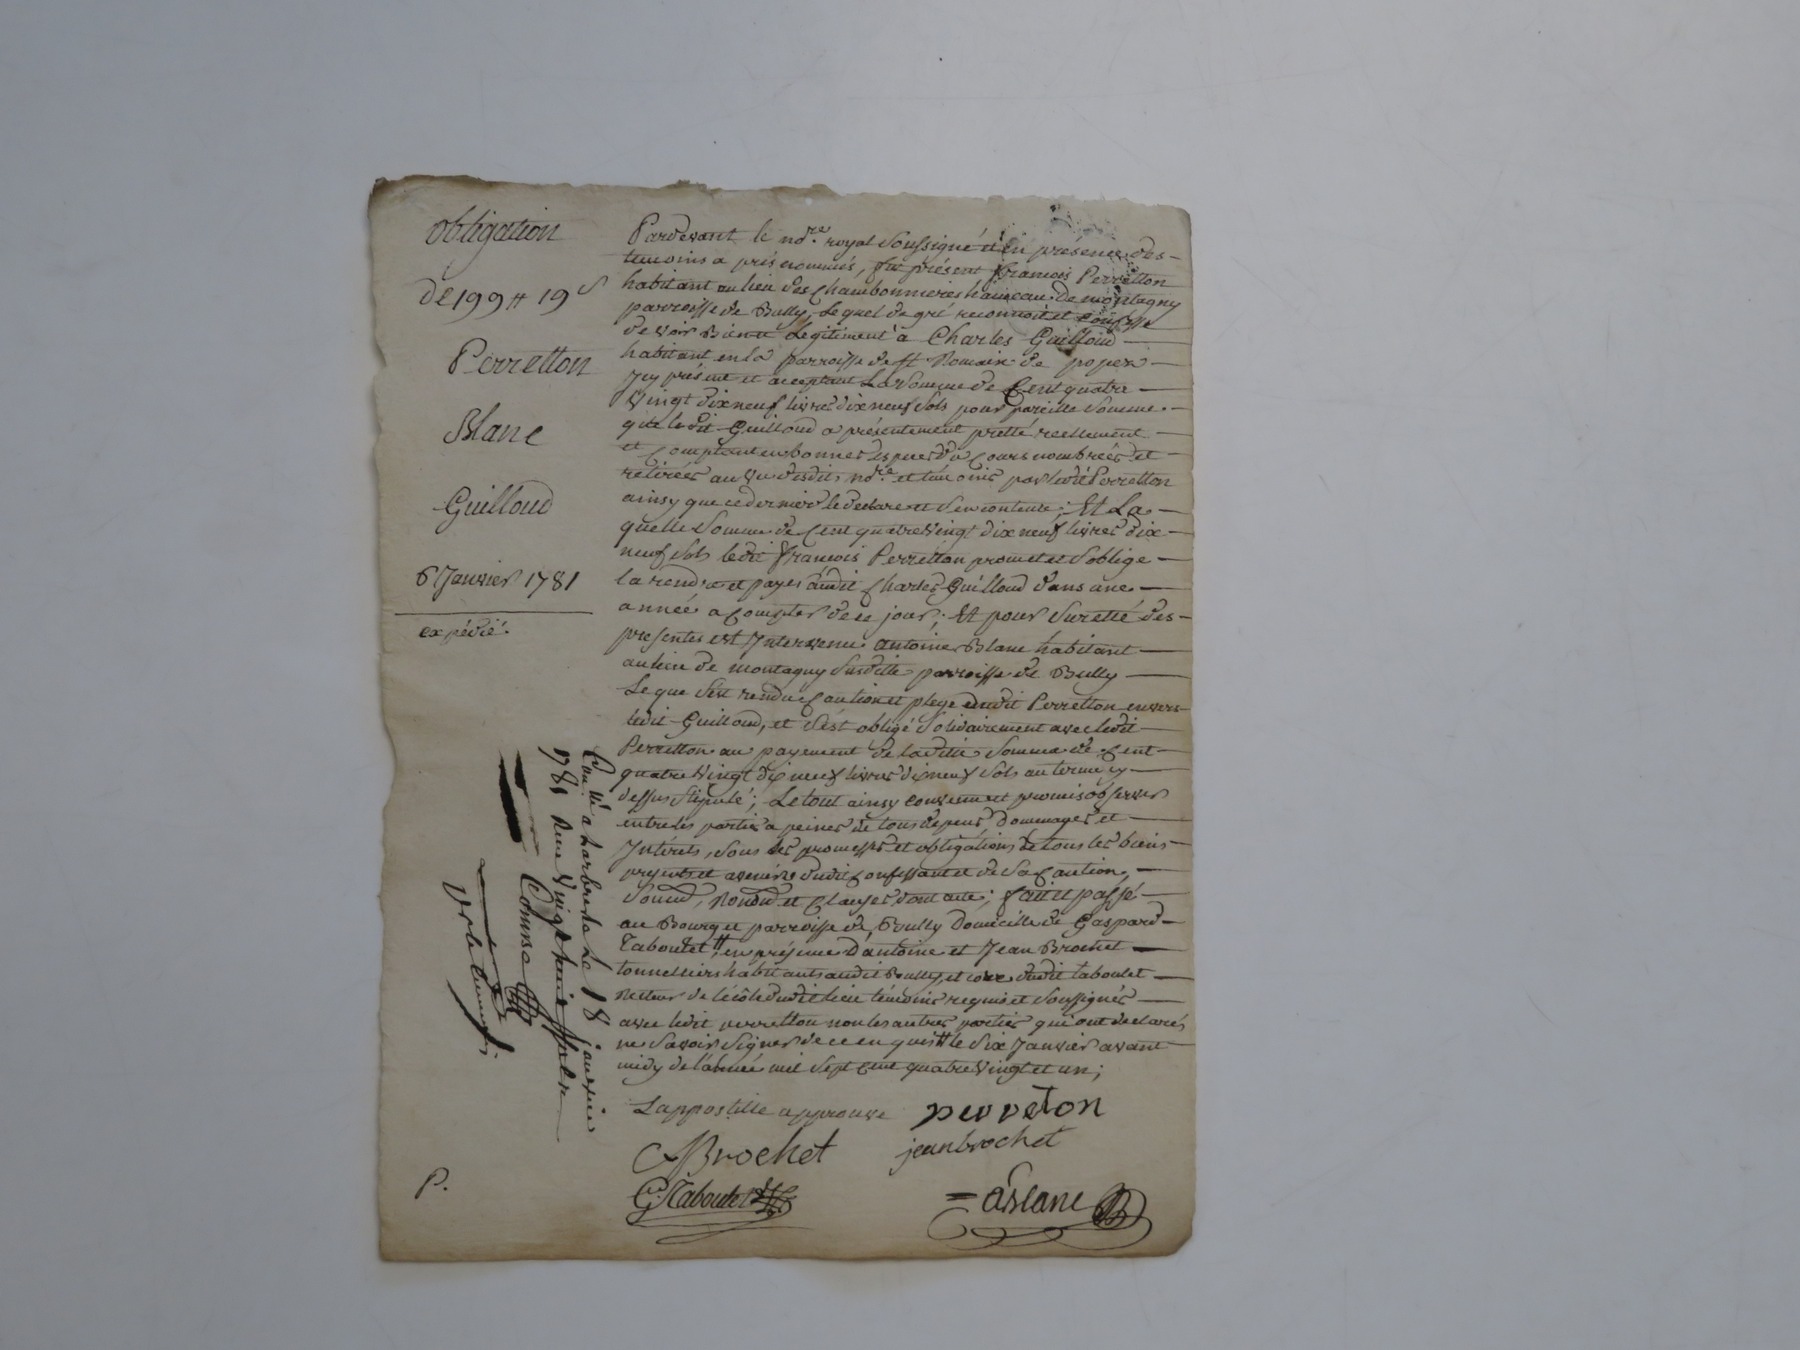 obligation
de 199 ₶ 19 s
Perretton
Blanc
Guilloud
6 Janvier 1781
expédié.
Pardevant le no.re royal soussigné et en présence des
temoins a prés nommés, fut présent françois Perretton
habitant au lieu des chambonnieres hameau de montagny
parroisse de Bully, Lequel de gré reconnoit et confesse
devoir Bien et Legitiment à Charles Guilloud
habitant en la parroisse de st Romain de popez
Icy présent et acceptant La somme de Cent quatre
Vingt dix neuf livres dix neuf sols pour pareille somme
que ledit Guilloud a présentement pretté reellement
et comptant en bonnes especes du cours nombrées et
retirées au vu desdits no.re et témoins par ledit Perretton
ainsy que ce dernier le declare et s'en contente; Et La
quelle somme de Cent quatre vingt dix neuf livres dix
neuf sols ledit françois Perretton promet et s'oblige
la rendre et payer audit Charles Guilloud dans une
année a compter de ce jour; Et pour sureté des
presentes est Intervenu antoine Blanc habitant
au lieu de montagny susditte parroisse de Bully
Le que s'est rendu caution et plege dudit Perretton envers
ledit Guilloud, et s'est obligé solidairement avec ledit
Perretton au payement de laditte somme de Cent
quatre Vingt dix neuf livres dix neuf sols au terme cy
dessus stipulé; Le tout ainsy convenu et promis observer
entre les parties a peines de tous depens dommages et
Interets, sous les promesses et obligations de tous les biens
presents et avenirs dudit confessant et de sa caution,
soumd, Renond et clauses dont acte; fait et passé
au Bourg et parroisse de Bully domicille de Gaspard
Taboutet ₶, en présence d'antoine et Jean Brochet
tonnelliers habitants audit Bully, et dudit taboutet
Recteur de l'écôle dudit lieu témoins requis et soussignés
avec ledit perretton non les autres parties qui ont declarés
ne savoir signer de ce enquis ₶ le six Janvier avant
midy de l'année mil sept Cent quatre Vingt et un;
Lappostille approuvé
perreton
ABrochet
jean brochet
G. Taboutet
aBlanc
P.
Con.lé a Larbresle Le 18 janvier
1781 Reçu Vingt huit sols